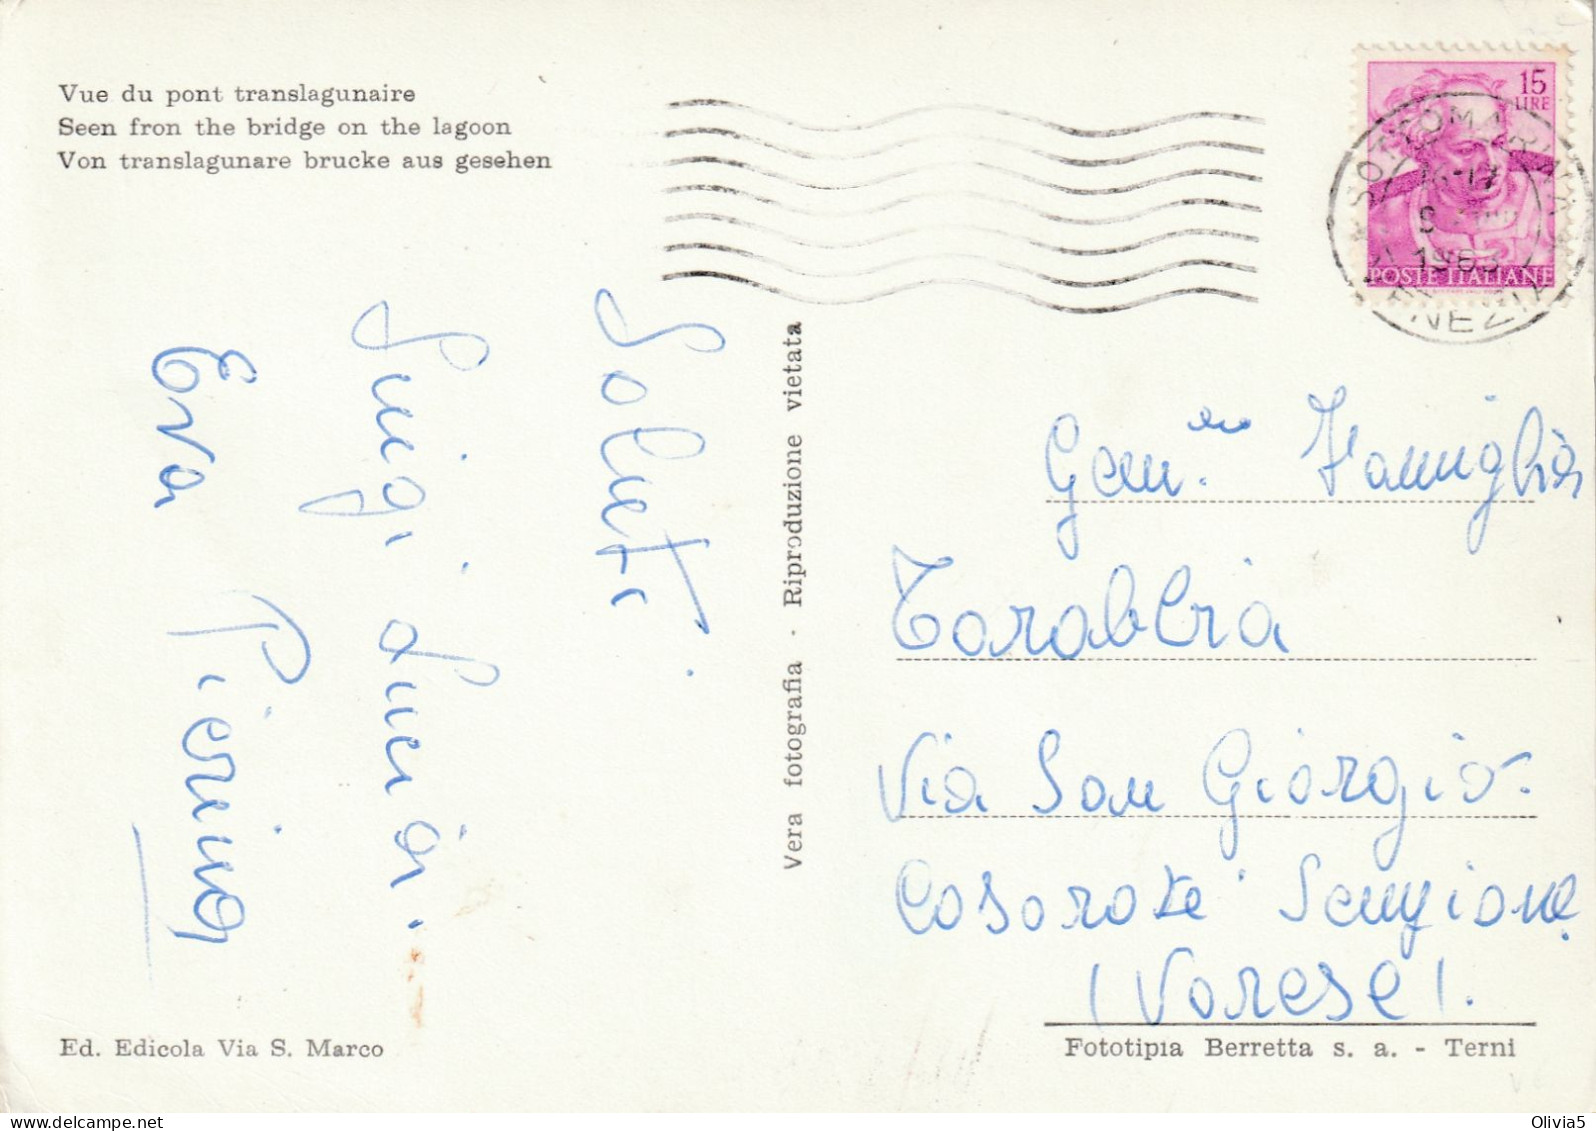 Vue du pont translagunaire
Seen fron the bridge on the lagoon
Von translagunare brucke aus gesehen
15
LIRE
POSTE ITALIANE
SOTTOMARINA
16-17
1963
VENEZIA
Saluti
Luigi Lucia.
Eva Pierina
Vera fotografia - Riproduzione vietata
Gen.ma Famiglia
Via San Giorgio.
Casorate Sempione
(Varese).
Ed. Edicola Via S. Marco
Fototipia Berretta s. a. - Terni
Olivia5